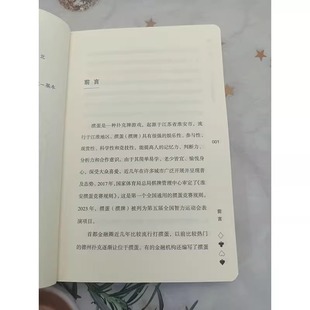 前 言
掼蛋是一种扑克牌游戏，起源于江苏省淮安市，流
行于江淮地区。掼蛋（掼牌）具有很强的娱乐性、参与性、
观赏性、科学性和竞技性，能提高人的记忆力、判断力、
分析力的合作意识。由于其简单易学，老少皆宜，愉悦身
心，深受大众喜爱。近几年在许多城市广泛开展并呈现普
及态势。2017年，国家体育总局棋牌管理中心审定了《淮
安掼蛋竞赛规则》，这是第一个全国通用的掼蛋竞赛规则。
2023年，掼蛋（掼牌）被列为第五届全国智力运动会表
演项目。
首都金融圈近几年比较流行打掼蛋，以前比较热门
的德州扑克逐渐让位于掼蛋。有的金融机构还编写了掼蛋
001
前言